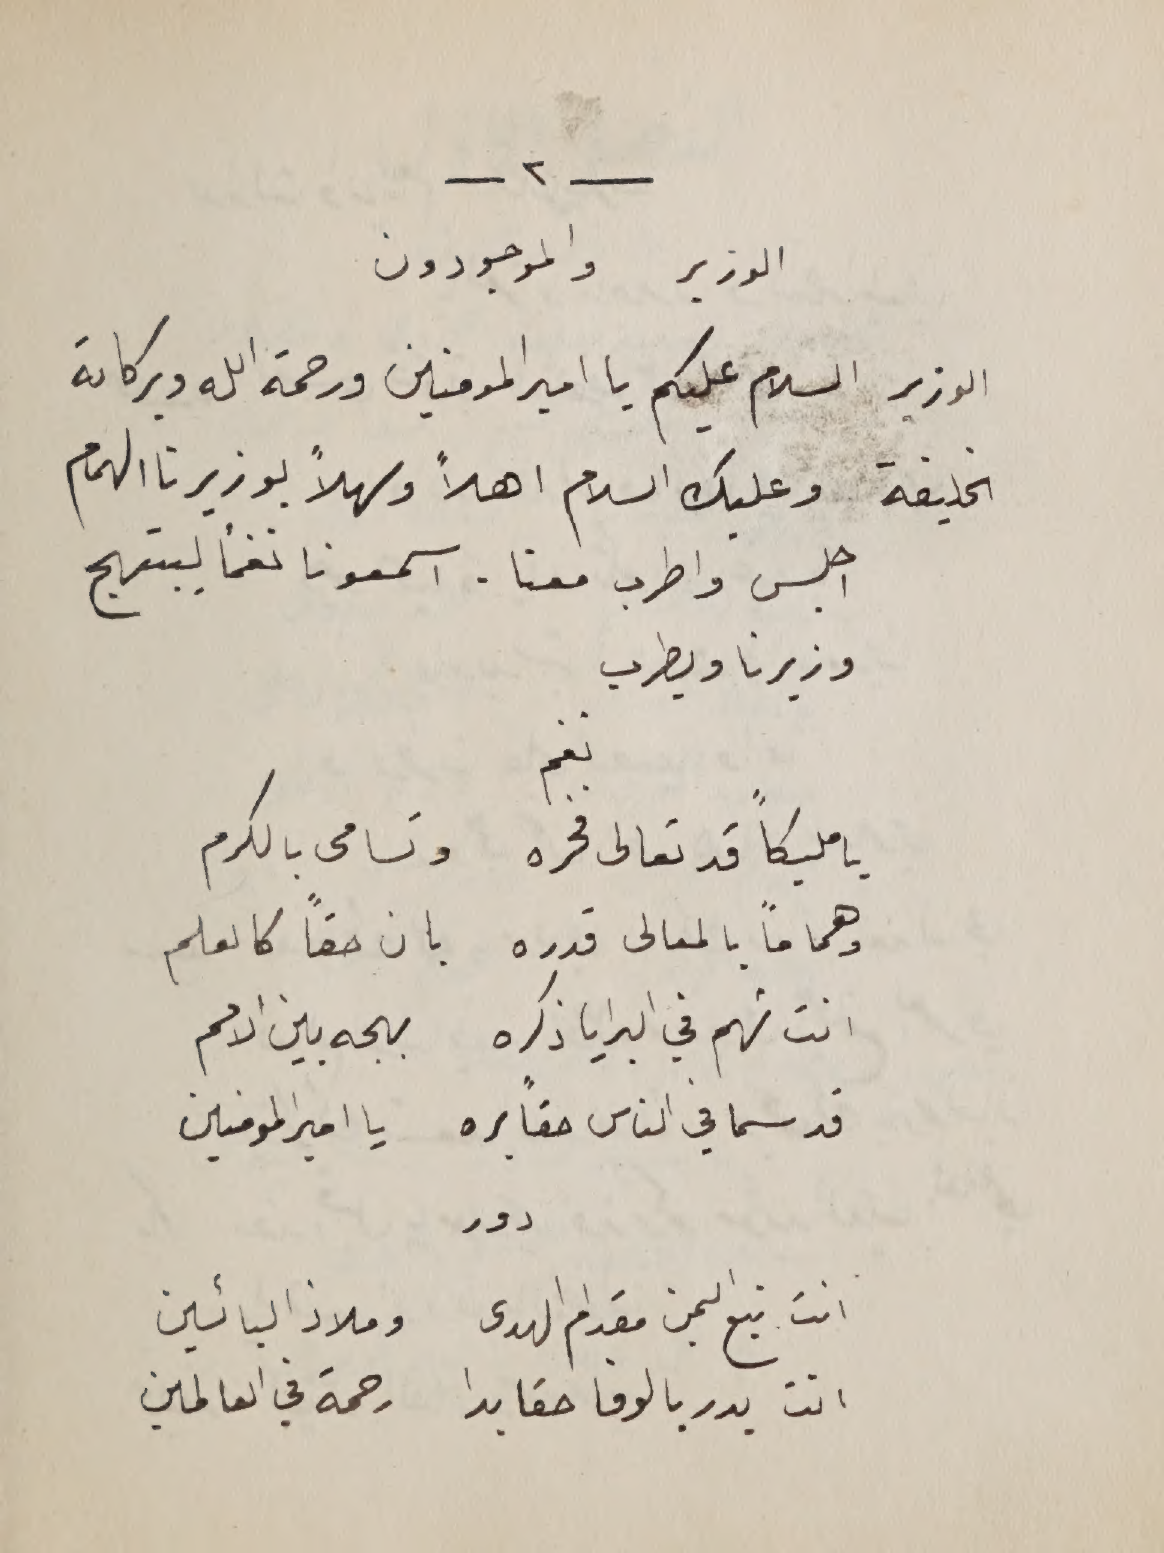 — ٢ —
الوزير والموجودون
الوزير السلام عليكم يا امير المومنين ورحمة الله وبركاته
الخليفة وعليك السلام اهلاً وسهلاً بوزيرنا الهمام
اجلس واطرب معنا . اسمعونا نغماً ليبتهج
وزيرنا ويطرب
نغم
يا مليكاً قد تعالى فخره وتسامى بالكرم
وهماماً بالمعالى قدره بان حقاً كالعلم
انت شهم في البرايا ذكره بهجه بين الامم
قد سما في الناس حقاً بره يا امير المومنين
دور
انت نبع اليمن مقدام الهدى وملاذ البائسين
انت بدر بالوفا حقا بدا رحمة في العالمين